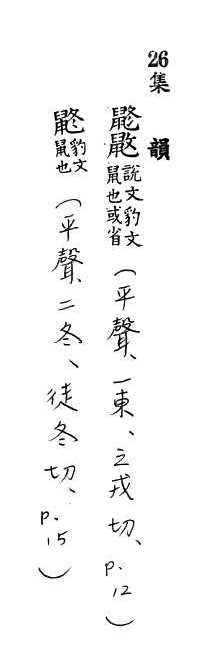 26集 韻
鼨說文豹文鼠也或省(平聲、一東、之戎切、p.12)
鼨豹文鼠也(平聲、二冬、徒冬切、p.15)